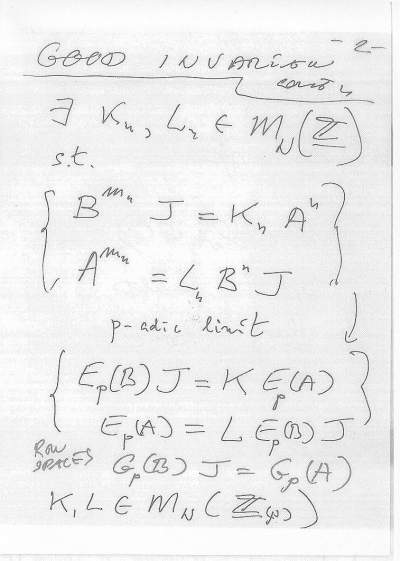 GOOD INVARIAN -2-
cont'd
∃ K_n, L_n ∈ M_N(ℤ)
s.t.
{ B^{m_n} J = K_n A^n }
{ A^{m_n} = L_n B^n J }
p-adic limit
{ E_p(B) J = K E_p(A) }
{ E_p(A) = L E_p(B) J }
ROW SPACES G_p(B) J = G_p(A)
K, L ∈ M_N(ℤ_(p))